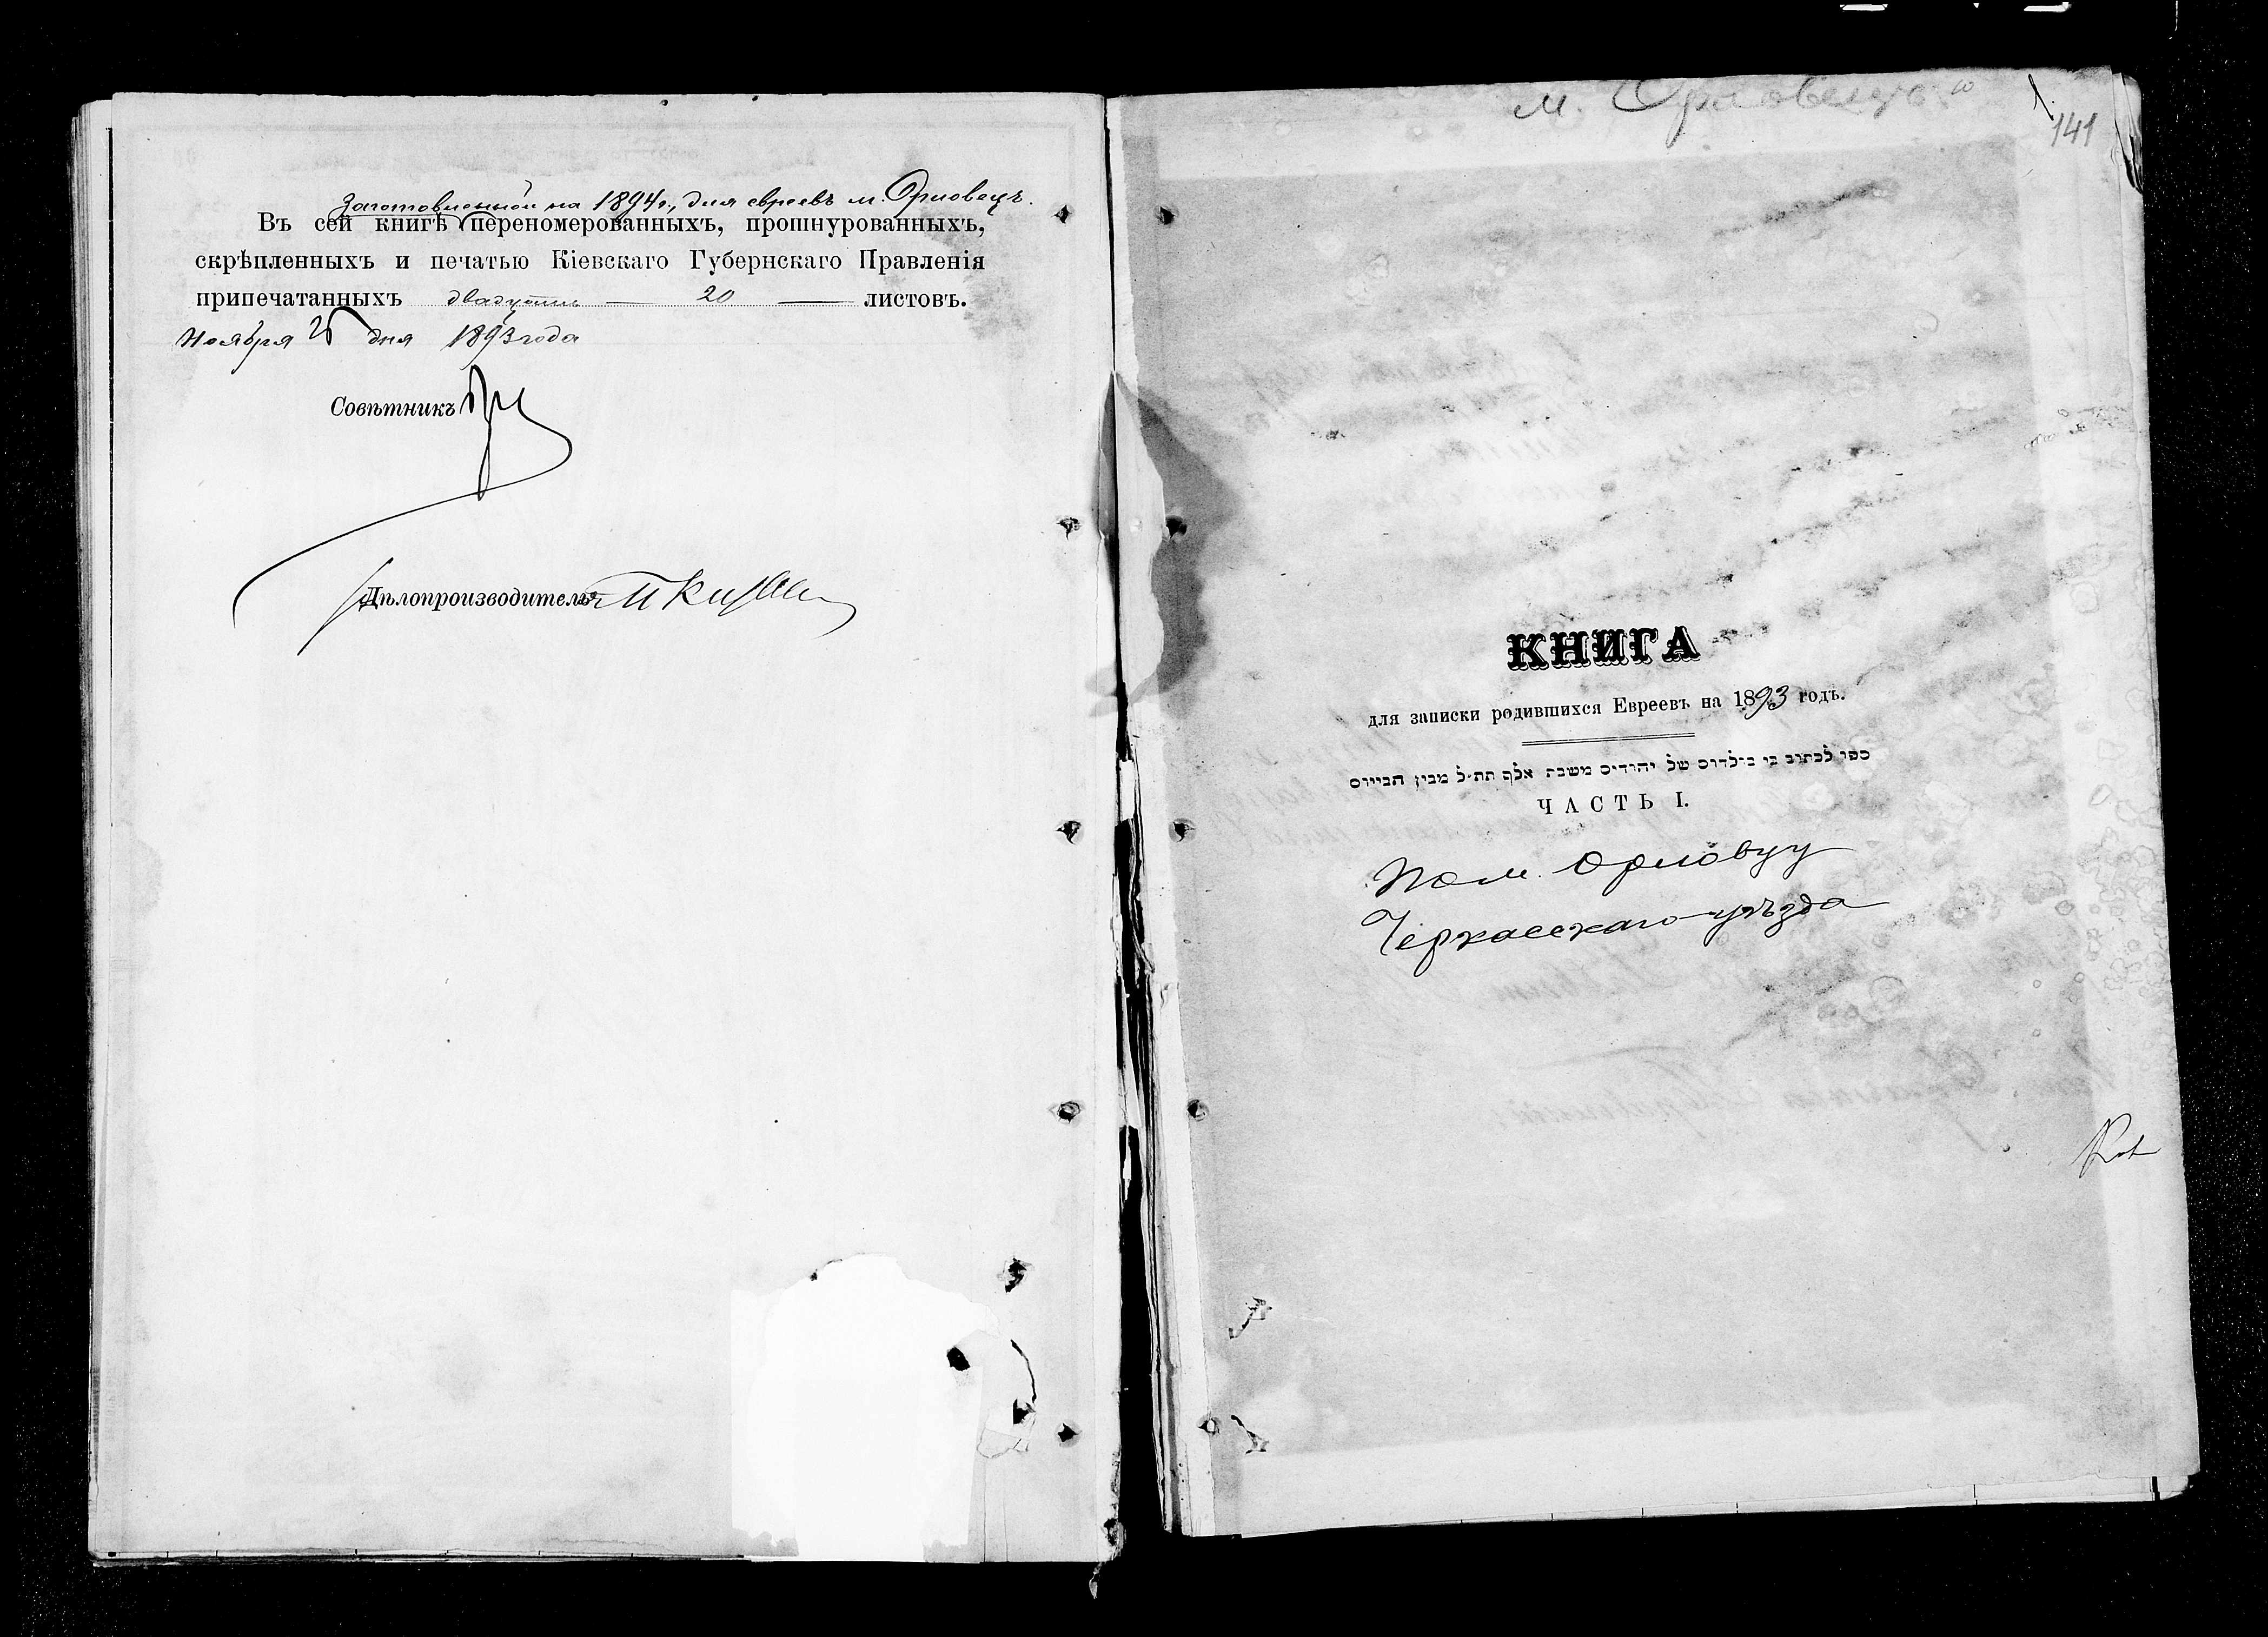 Заготовленной на 1894 г., для евреевъ м. Орловецъ.
Въ сей книгѣ переномерованныхъ, прошнурованныхъ,
скрѣпленныхъ и печатью Кіевскаго Губернскаго Правленія
припечатанныхъ двадцать — 20 — листовъ.
Ноября дня 1893 года
Совѣтникъ
Дѣлопроизводитель
м. Орловецъ
1.
141
КНИГА
для записки родившихся Евреевъ на 1893 годъ.
ספר לכתוב בו של יהודים אלף
ЧАСТЬ I.
По м. Орловцу
Черкасскаго уѣзда